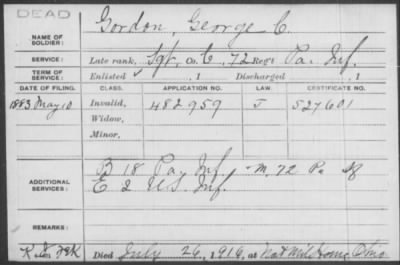 DEAD
Gordon, George C.
NAME OF SOLDIER:
SERVICE: Late rank, Sgt, Co. C, 72 Reg't Pa. Inf.
TERM OF SERVICE: Enlisted , 1 Discharged , 1
DATE OF FILING. CLASS. APPLICATION NO. LAW. CERTIFICATE NO.
1883 May 10 Invalid, 482959 J 527601
Widow,
Minor,
B 18 Pa. Inf. - M. 72 Pa
ADDITIONAL SERVICES: E 2 U.S. Inf.
REMARKS:
Died July 26, 1916, at Nat Mil Home Ohio